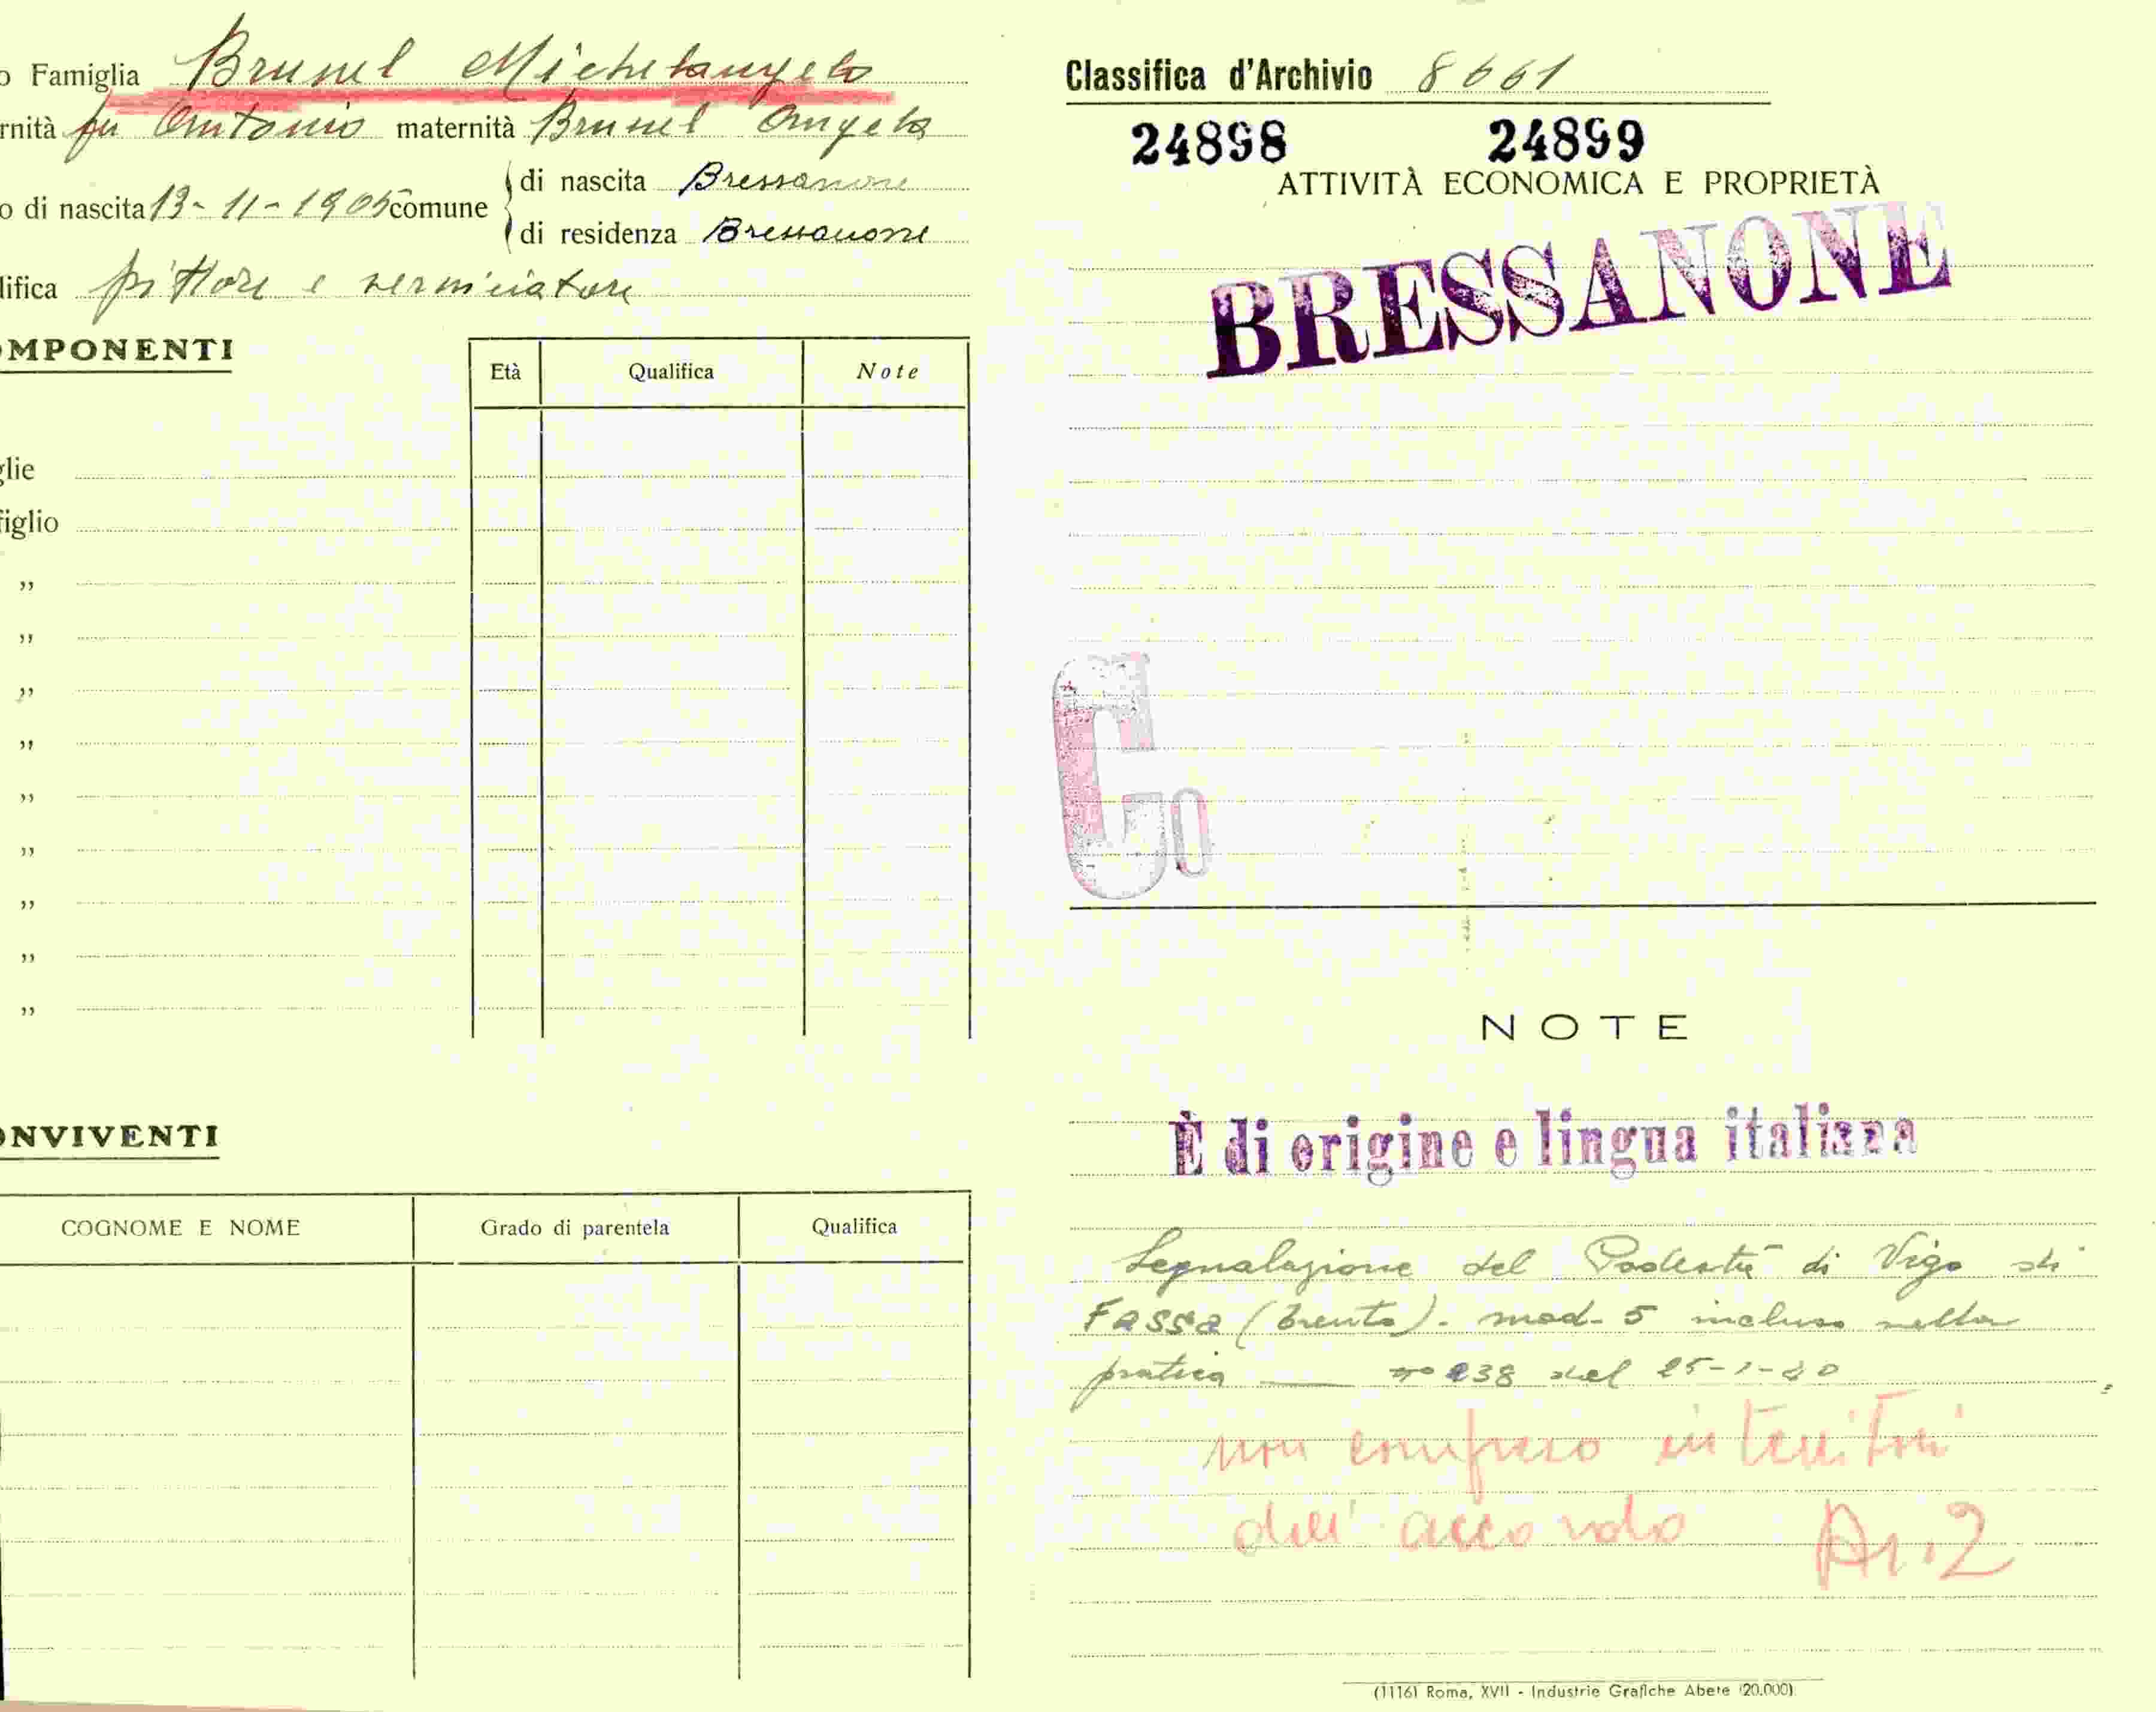 o Famiglia Brunel Michelangelo
rnità fu Antonio maternità Brunel Angela
o di nascita 13-11-1905 comune di nascita Bressanone
di residenza Bressanone
lifica pittore e verniciatore
OMPONENTI
Età Qualifica Note
glie
figlio
"
"
"
"
"
"
"
"
"
ONVIVENTI
COGNOME E NOME Grado di parentela Qualifica
Classifica d'Archivio 8661
24898 24899
ATTIVITÀ ECONOMICA E PROPRIETÀ
BRESSANONE
G0
NOTE
È di origine e lingua italiana
Segnalazione del Podestà di Vigo di
Fassa (Trento). mod. 5 incluso nella
pratica n° 238 del 25-1-40
non compreso in territori
dell'accordo
(1116) Roma, XVII - Industrie Grafiche Abete (20.000)